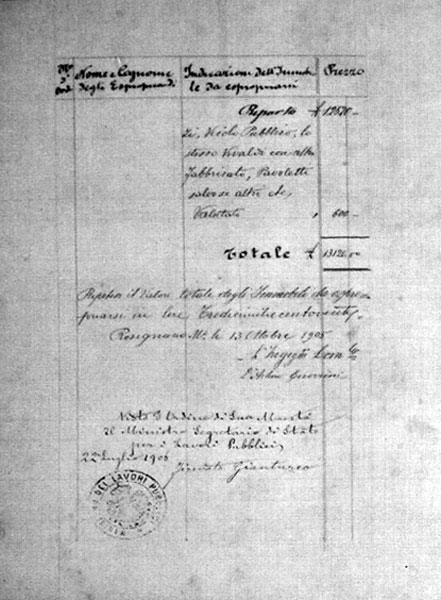 N° d' ord. Nome e Cognome degli Espropriandi Indicazioni dell'Immobile da espropriarsi Prezzo
Riporto £ 12520 —
zi, Vicolo Pubblico, lo
stesso Vivaldi con altro
fabbricato, Pavoletti
salvo se altri etc,
Valutato " 600 —
Totale £ 13120.00
il Valore totale degli Immobili da espro-
priarsi in lire Tredicimilacentoventi
Rosignano Mº. li 13 Ottobre 1905
L'Ingeg
Visto d'Ordine di Sua Maestà
Il Ministro Segretario di Stato
per i Lavori Pubblici
22 Luglio 1906
Gianturco
DEI LAVORI PUB